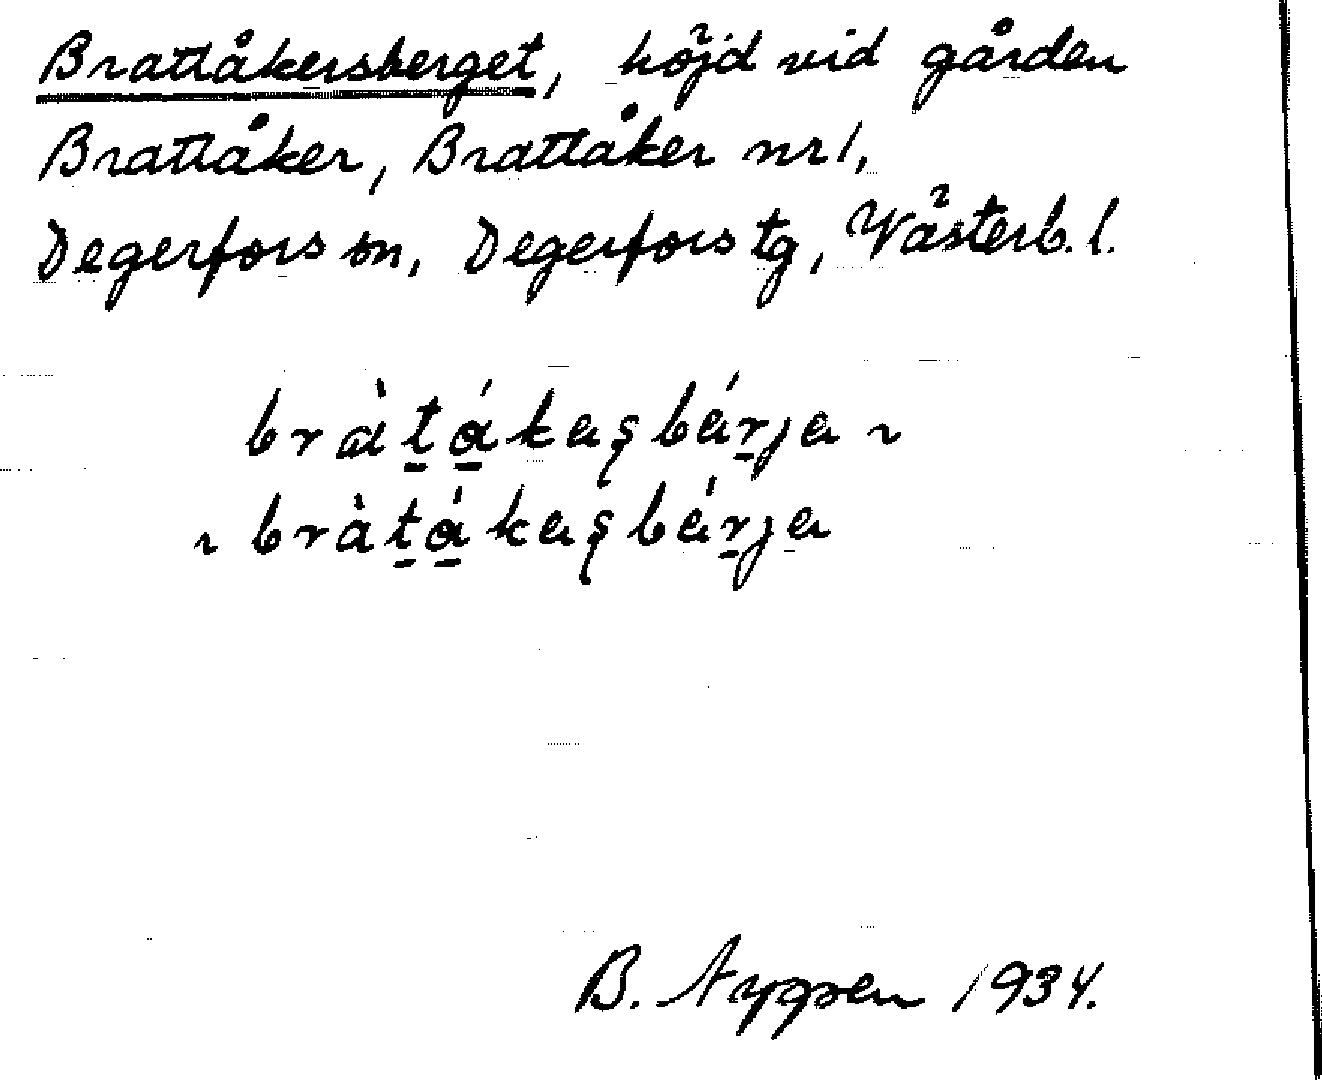 Brattåkersberget, höjd vid gården
Brattåker, Brattåker nr 1,
Degerfors sn, Degerfors tg, Västerb. l.
bràt̲á̲kaʂbár̲ja ~
~ bràt̲á̲kaʂbár̲ja
B. Nygren 1934.